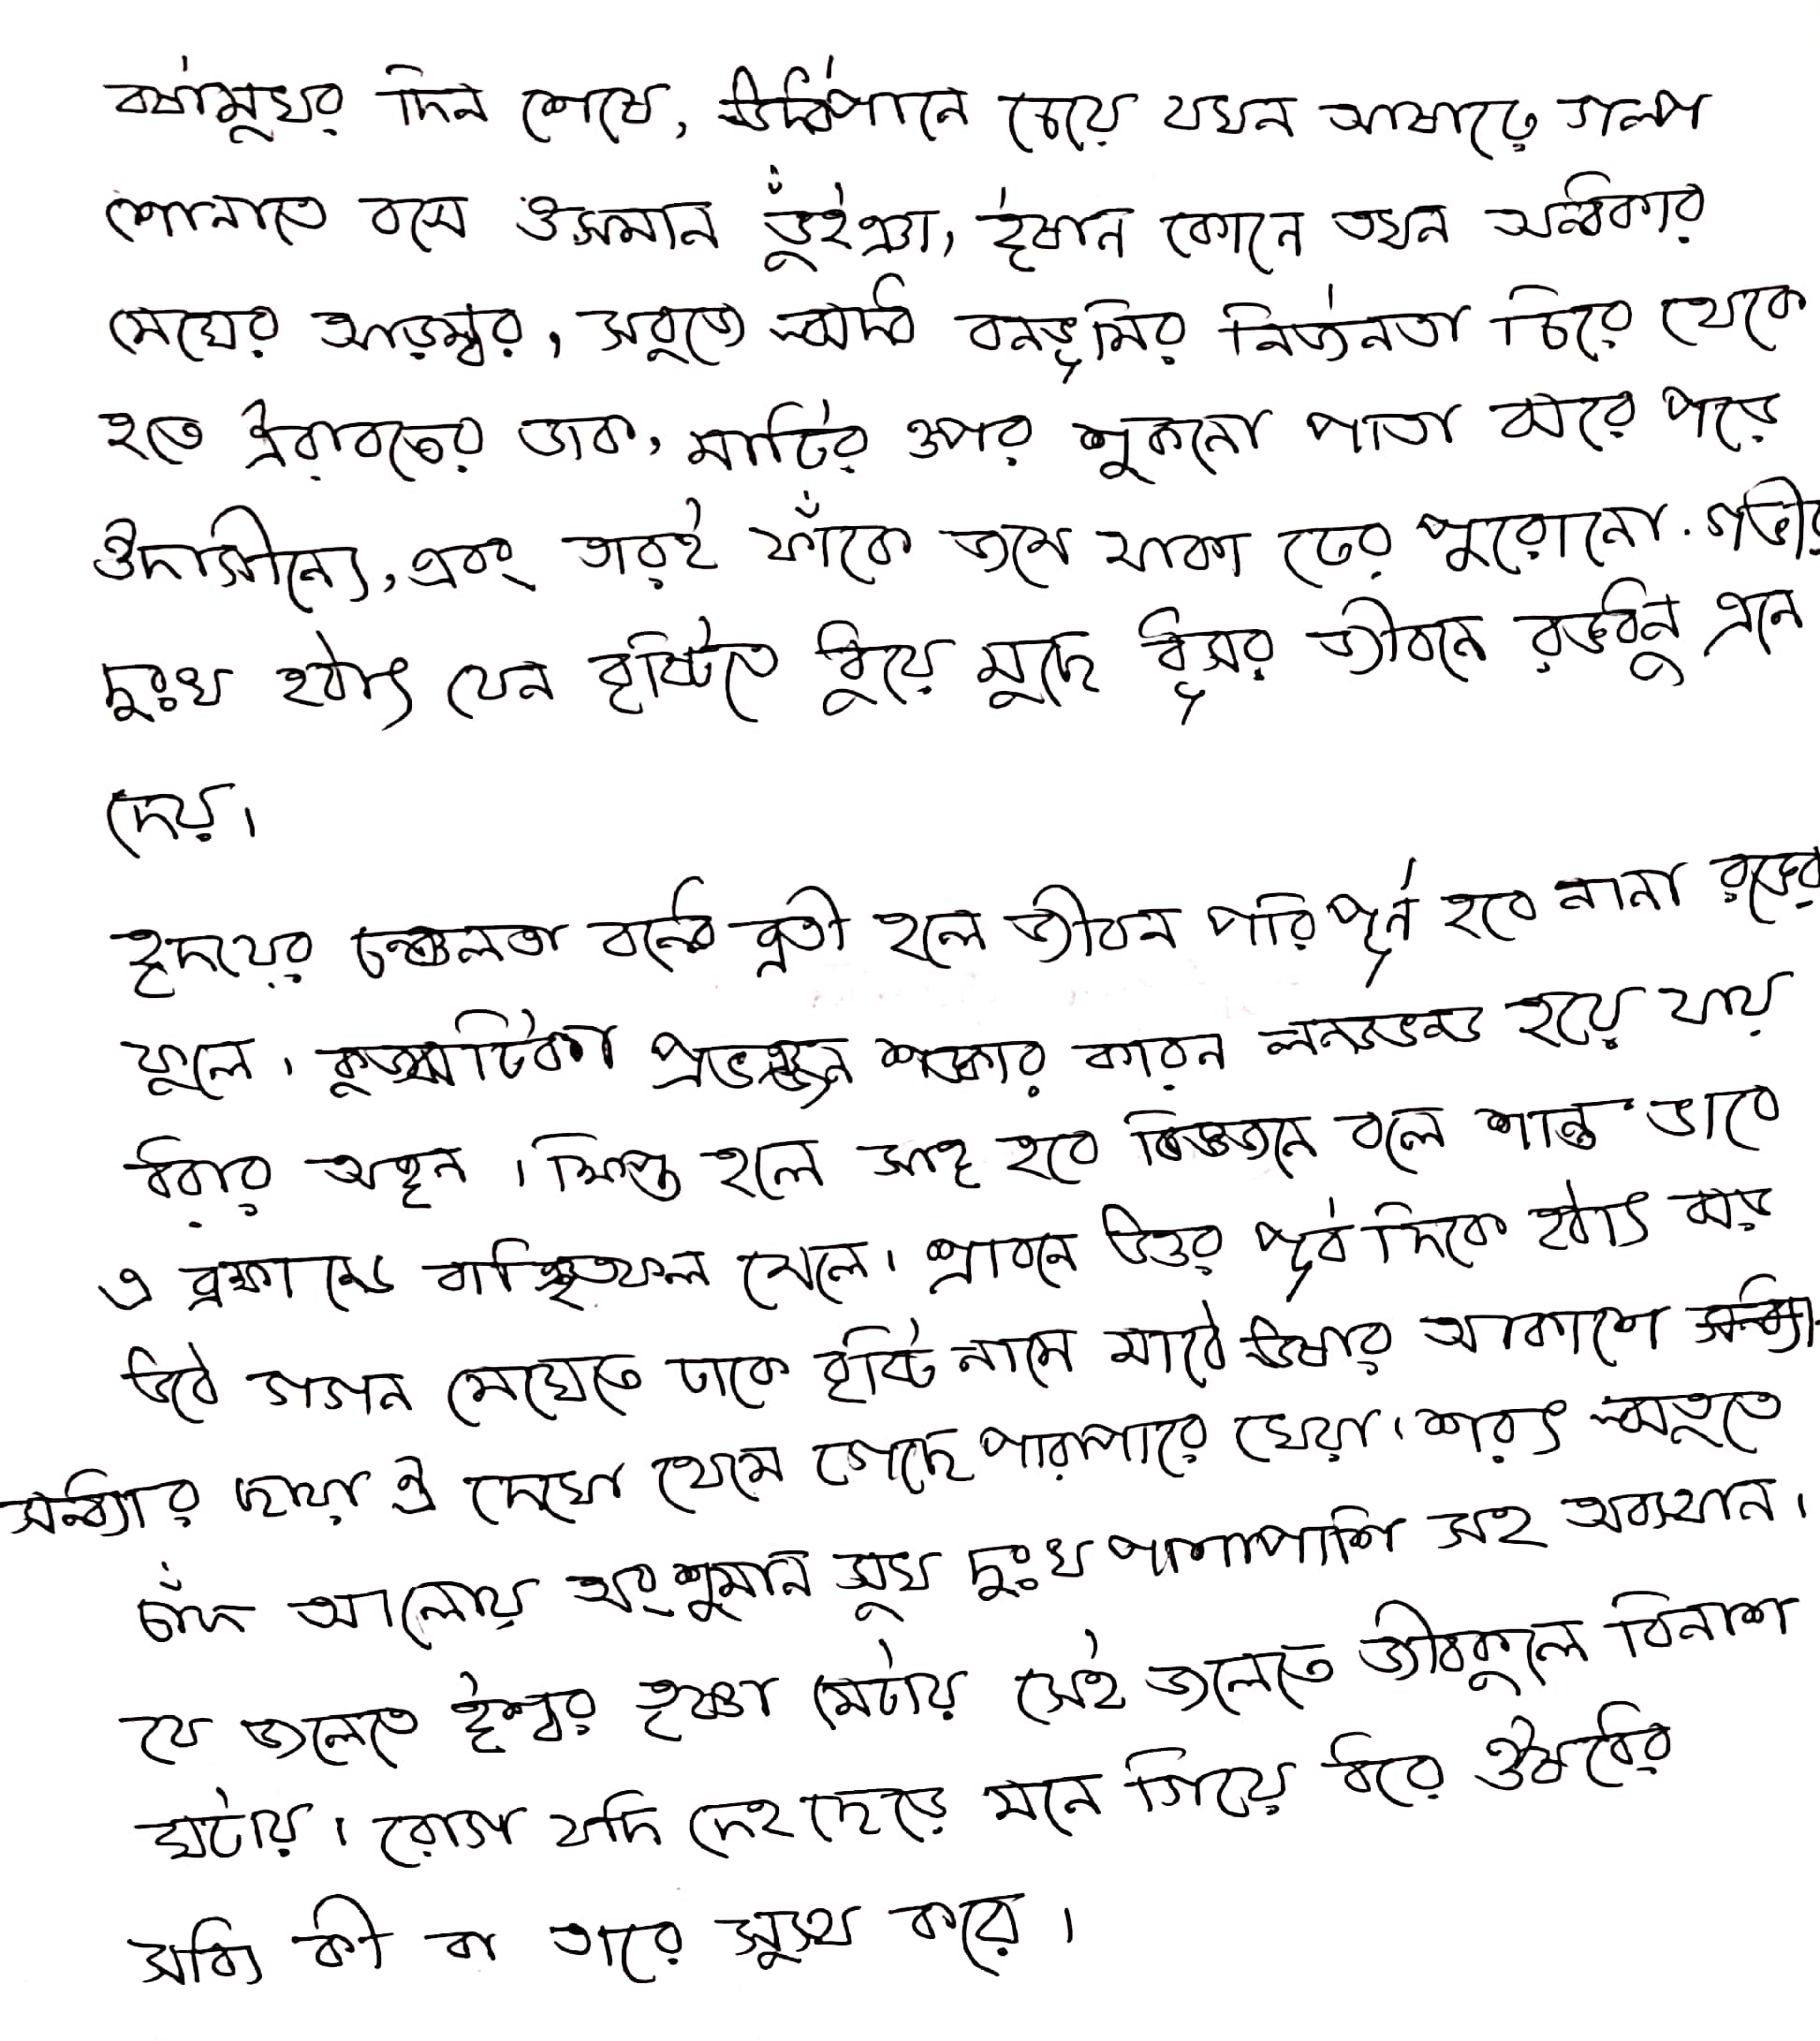 বর্ষামুখর দিন শেষে, ঊর্দ্ধপানে চেয়ে যখন আষাঢ়ে গল্প
শোনাতে বসে ওসমান ভুঁইঞা, ঈষান কোনে তখন অন্ধকার
মেঘের আড়ম্বর, সবুজে ঋদ্ধ বনভূমির নির্জনতা চিরে থেকে
হতে ঐরাবতের ডাক, মাটির ওপর শুকনো পাতা ঝরে পড়ে
ঔদাসীন্যে, এবং তারই ফাঁকে জমে থাকা ঢের পুরোনো গভীর
দুঃখ হঠাৎ যেন বৃষ্টিতে ধুয়ে মুছে ধূসর জীবনে রঙধনু এনে
দেয়।
হৃদয়ের চঞ্চলতা বন্ধে ব্রতী হলে জীবন পরিপূর্ন হবে নানা রঙের
ফুলে। কুজ্ঝটিকা প্রভঞ্জন শঙ্কার কারন লন্ডভন্ড হয়ে যায়
ধরার অঙ্গন। ক্ষিপ্ত হলে সাঙ্গ হবে বিজ্ঞজনে বলে শান্ত ভাবে
এ ব্রহ্মান্ডে বাঞ্ছিতফল মেলে। শ্রাবনে উত্তর পূর্ব দিকে হঠাৎ ঝড়
উঠে গগন মেঘেতে ঢাকে বৃষ্টি নামে মাঠে ঊষার আকাশে
সন্ধ্যার ছায়া ঐ দেখো থেমে গেছে পারাপারে খেয়া। শরৎ ঋতুতে
চাঁদ আলোয় অংশুমান সুখ দুঃখ পাশাপাশি সহ অবস্থান।
যে জলেতে ঈশ্বর তৃষ্ণা মেটায় সেই জলেতে জীবকুলে বিনাশ
ঘটায়। রোগ যদি দেহ ছেড়ে মনে গিয়ে ধরে ঔষধের
সাধ্য কী বা তারে সুস্থ করে।